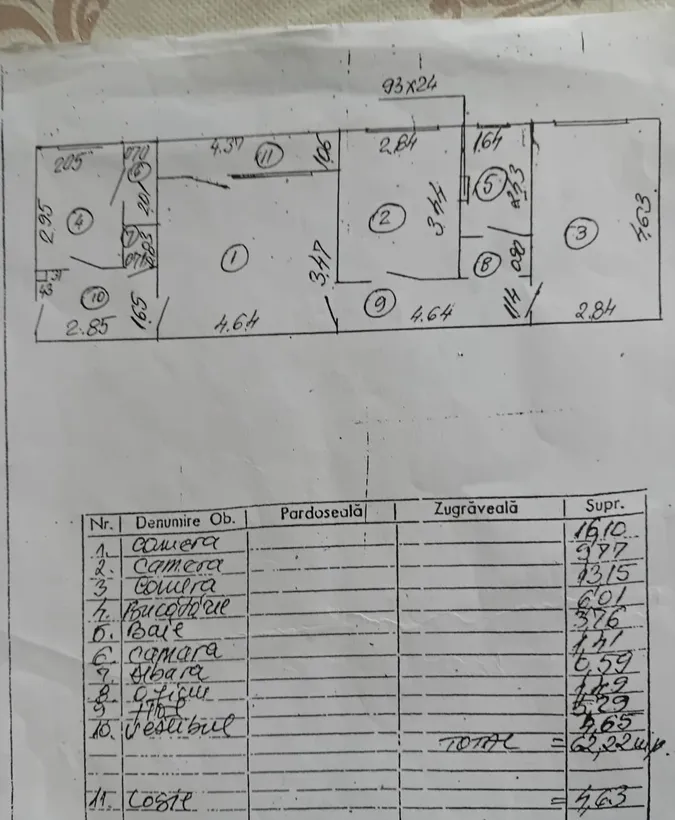 93x24
205
070
6
4.37
11
106
2.84
1.64
2.95
4
201
7
083
07
1
3.47
2
3.44
5
3
4.63
8
080
43
37
10
1.65
9
2.85
4.64
4.64
114
2.84
Nr. Denumire Ob. Pardoseală Zugrăveală Supr.
1. camera 16,10
2. camera 9,77
3 camera 13,15
4. Bucătărie 6,01
5. Baie 3,76
6. camara 1,41
7. 0,59
8
9 Hol 5,29
10. vestibul 4,65
TOTAL = 62,22 m.p.
11. Logie = 4,63